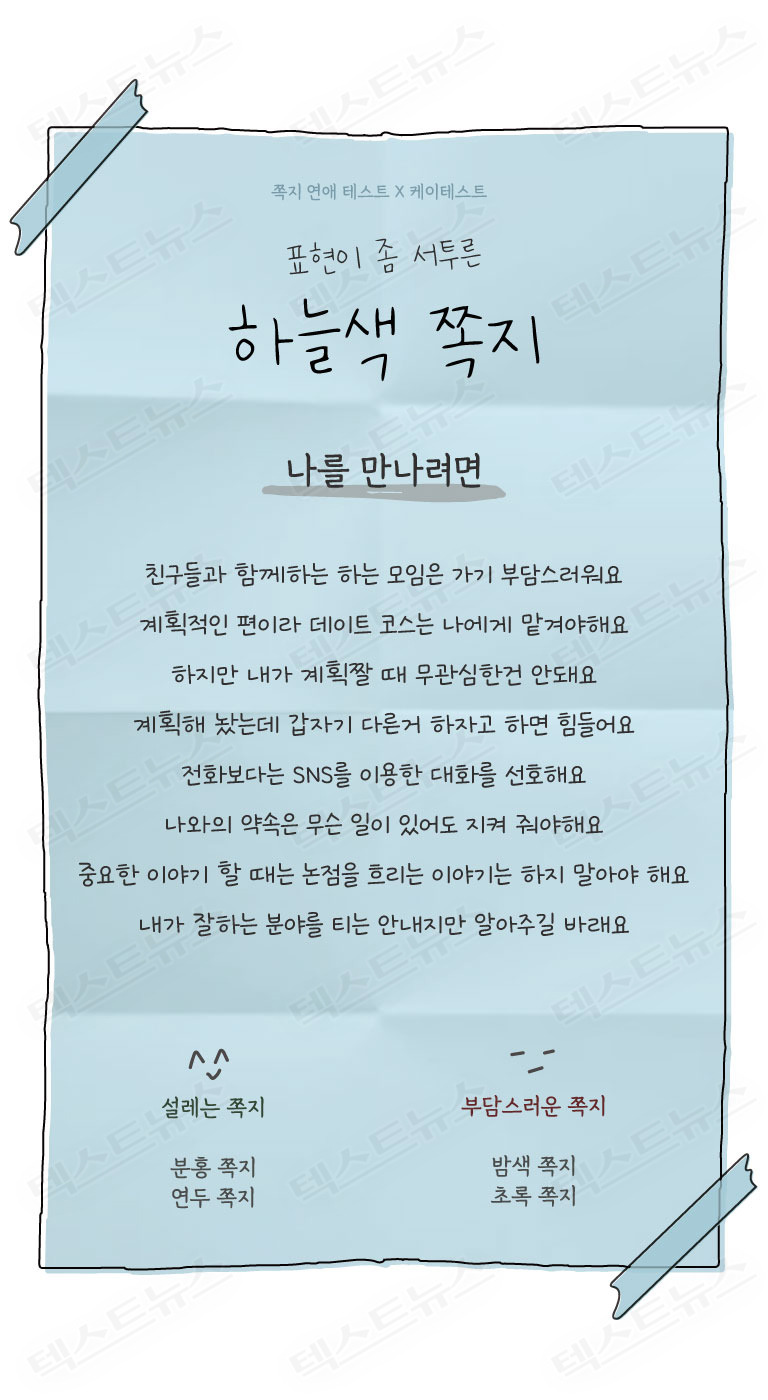 쪽지 연애 테스트 X 케이테스트
표현이 좀 서투른
하늘색 쪽지
나를 만나려면
친구들과 함께하는 하는 모임은 가기 부담스러워요
계획적인 편이라 데이트 코스는 나에게 맡겨야해요
하지만 내가 계획짤 때 무관심한건 안돼요
계획해 놨는데 갑자기 다른거 하자고 하면 힘들어요
전화보다는 SNS를 이용한 대화를 선호해요
나와의 약속은 무슨 일이 있어도 지켜 줘야해요
중요한 이야기 할 때는 논점을 흐리는 이야기는 하지 말아야 해요
내가 잘하는 분야를 티는 안내지만 알아주길 바래요
설레는 쪽지
분홍 쪽지
연두 쪽지
부담스러운 쪽지
밤색 쪽지
초록 쪽지
텍스트뉴스